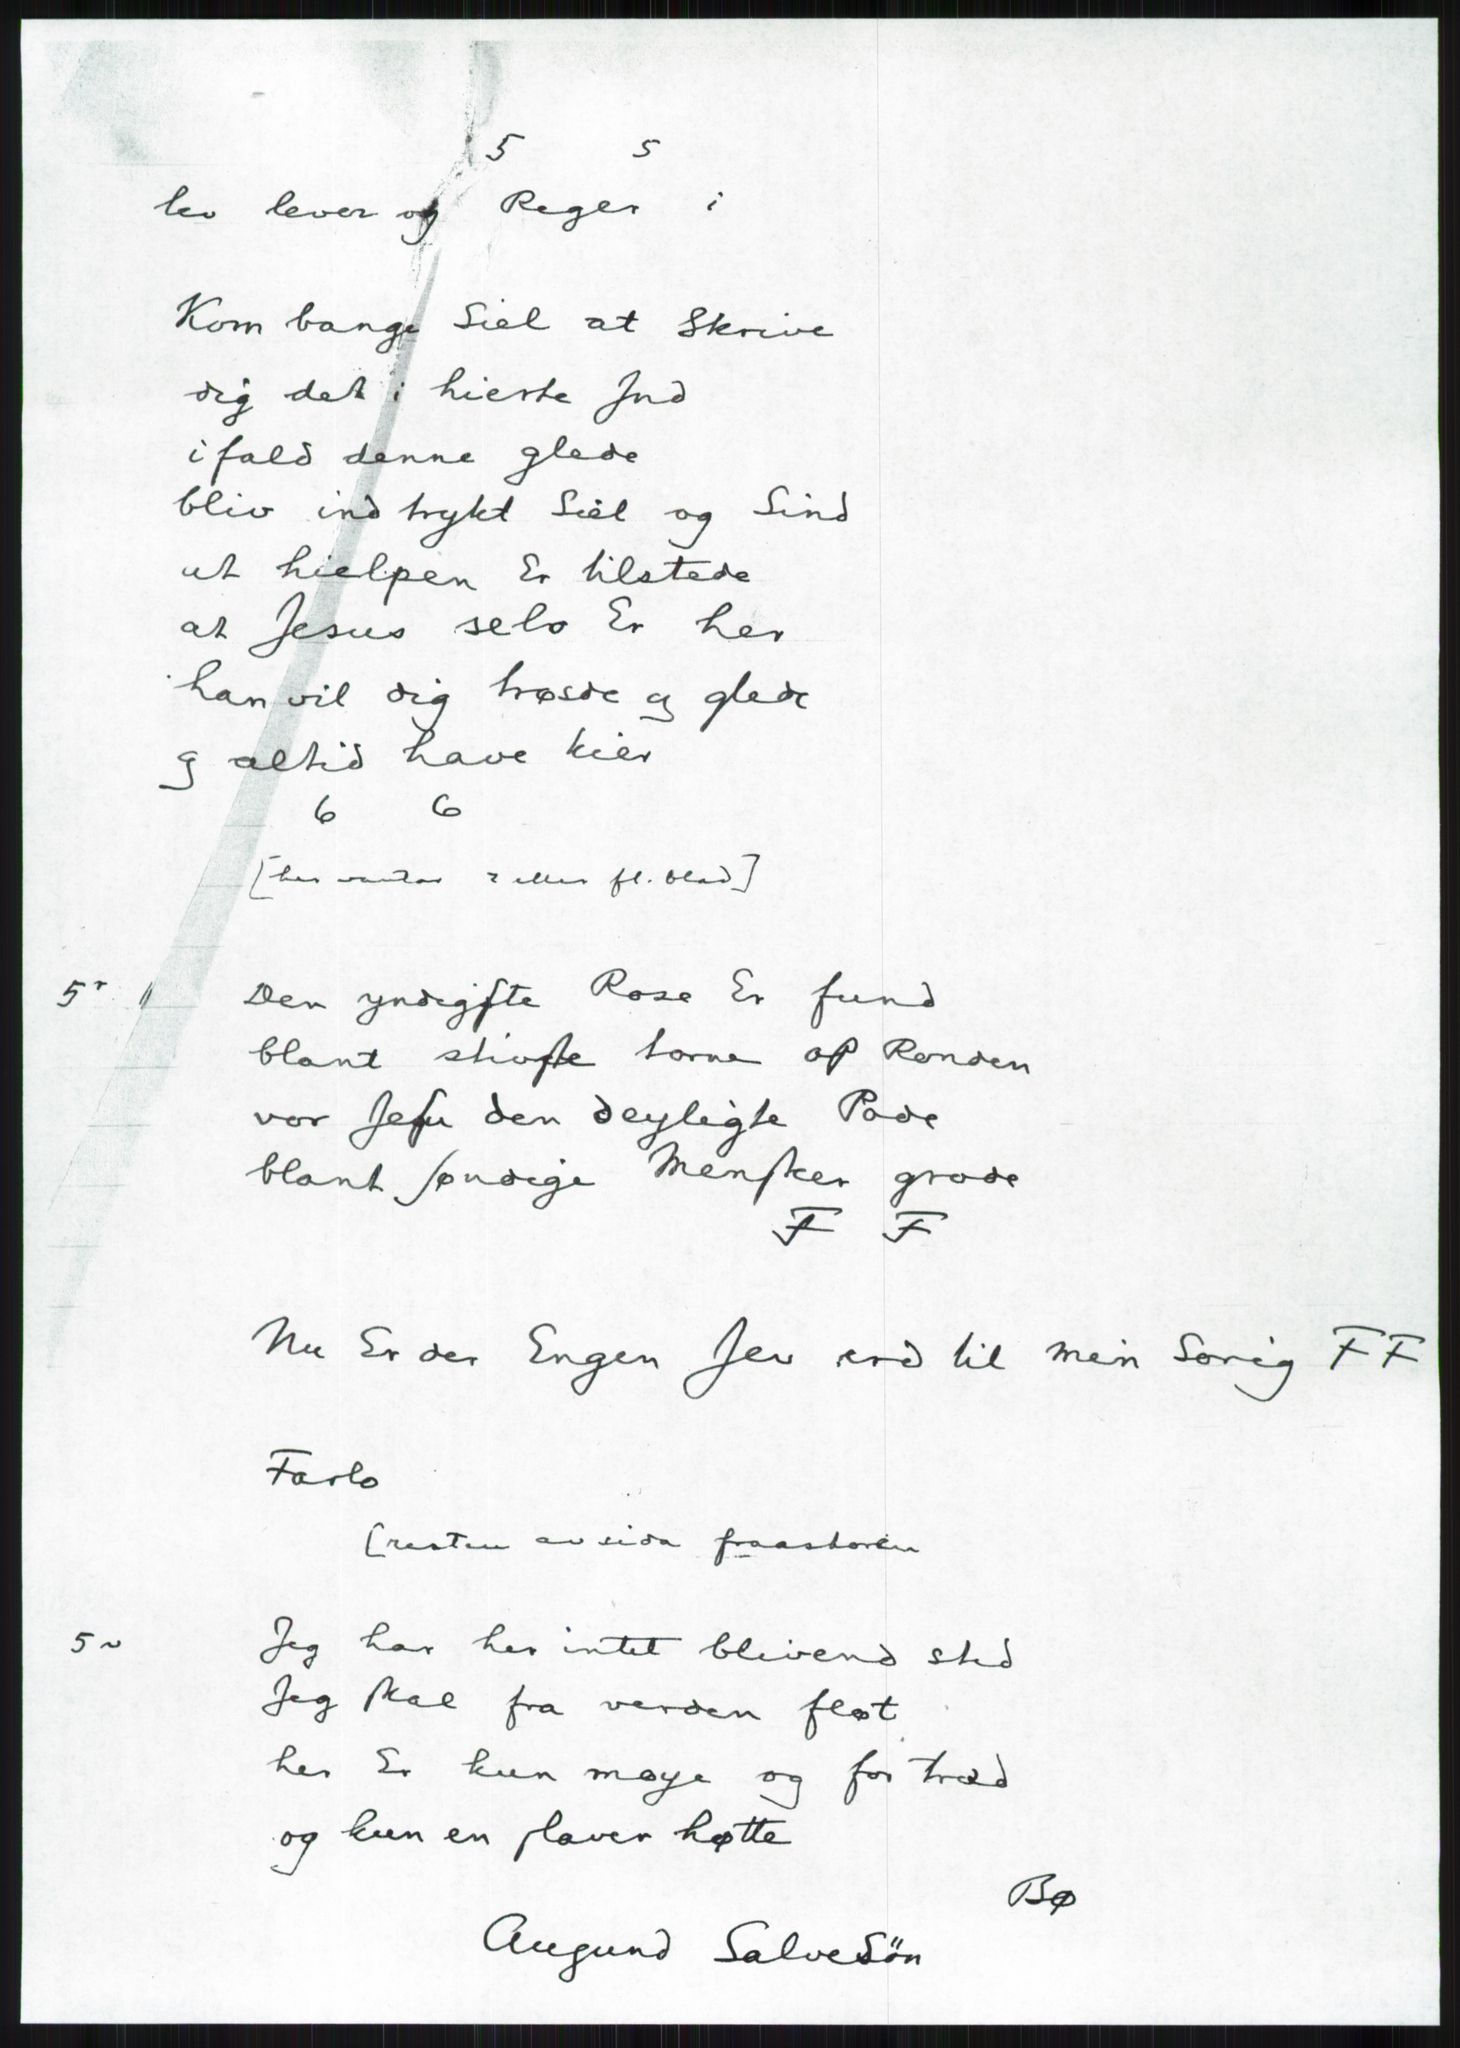 5 5
lev lever og Reger i
Kom bange Siel at Skrive
dig det i hierte Jnd
i fald denne glede
bliv ind trykt Siel og Sind
ut hielpen Er tilstede
at Jesus selv Er her
han vil dig trøsde og glede
og altid have kier
6 6
[her vantar 2 eller fl. blad]
5r Den yndigſte Rose Er fund
blant stivſte torne op Ronden
vor Jeſu den deyligte Pode
blant ſøndige Menſker grode
F F
Nu Er der Engen Jev erd til min Sorig F F
Farlo
[resten av sida fraaskoren
5v Jeg har her intet blivend sted
Jeg ſkal fra verden fløt
her Er kun møye og for træd
og kun en ſlaver høtte
Bø
Augund SalveSön